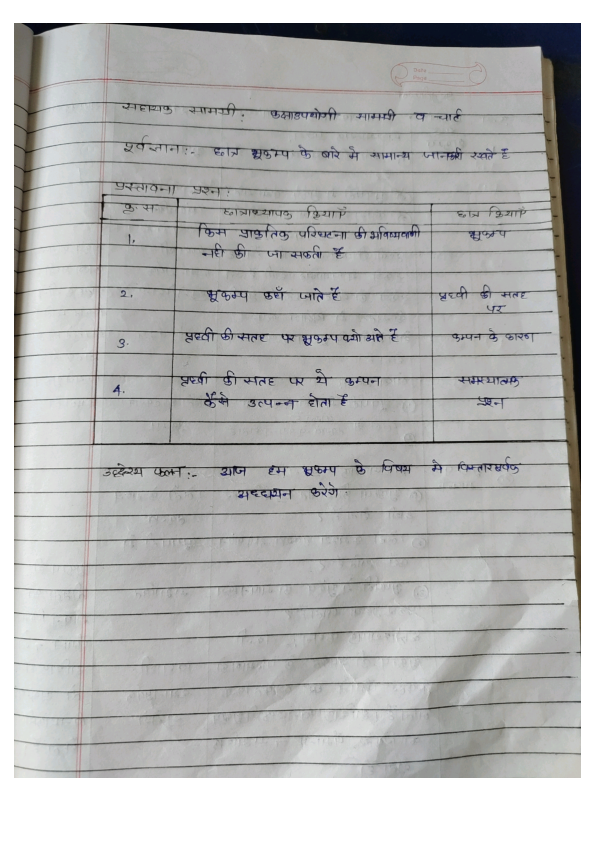 Date
Page
सहायक सामग्री: कक्षाउपयोगी सामग्री व चार्ट
पूर्वज्ञान:- छात्र भूकम्प के बारे मे सामान्य जानकारी रखते है
प्रस्तावना प्रश्न:
क्र.स छात्राध्यापक क्रियाएँ छात्र क्रियाएँ
1. किस प्राकृतिक परिघटना की भविष्यवाणी भूकम्प
नही की जा सकती है
2. भूकम्प कहाँ आते है पृथ्वी की सतह
पर
3. पृथ्वी की सतह पर भूकम्प क्यो आते है कम्पन के कारण
4. पृथ्वी की सतह पर ये कम्पन समस्यात्मक
कैसे उत्पन्न होता है प्रश्न
उद्देश्य कथन:- आज हम भूकम्प के विषय मे विस्तारपूर्वक
अध्ययन करेगे.